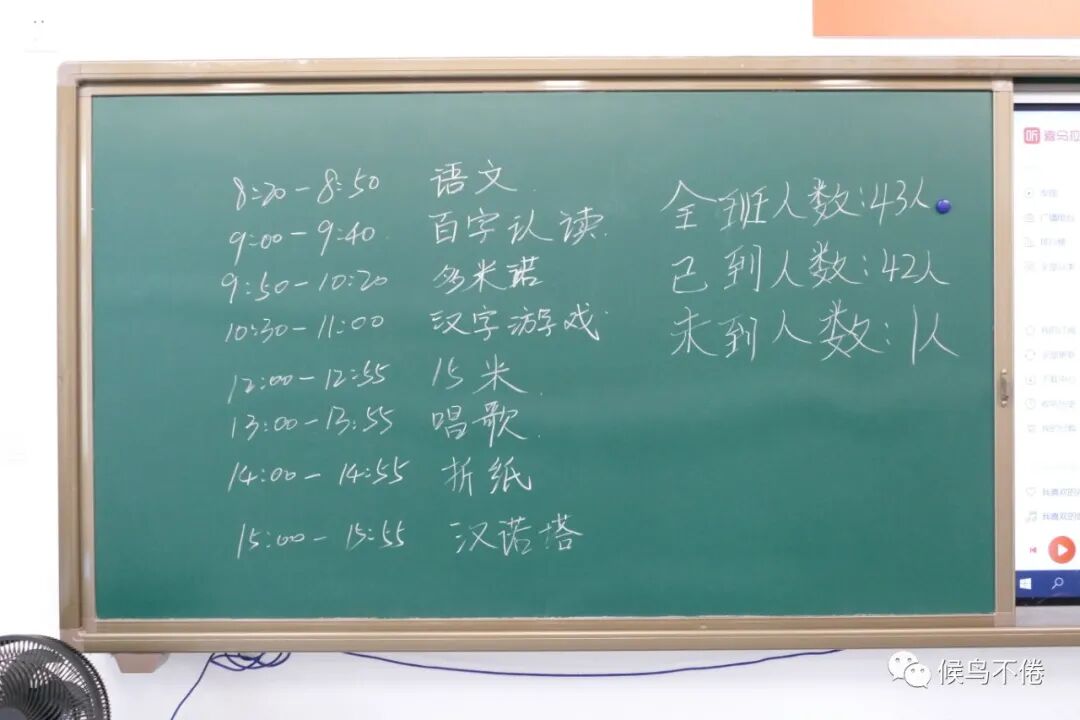 8:20-8:50 语文
9:00-9:40 百字认读
9:50-10:20 多米诺
10:30-11:00 汉字游戏
12:00-12:55 15米
13:00-13:55 唱歌
14:00-14:55 折纸
15:00-15:55 汉诺塔
全班人数:43人
已到人数:42人
未到人数:1人
听 喜马拉
我喜欢的
我喜欢的
候鸟不倦